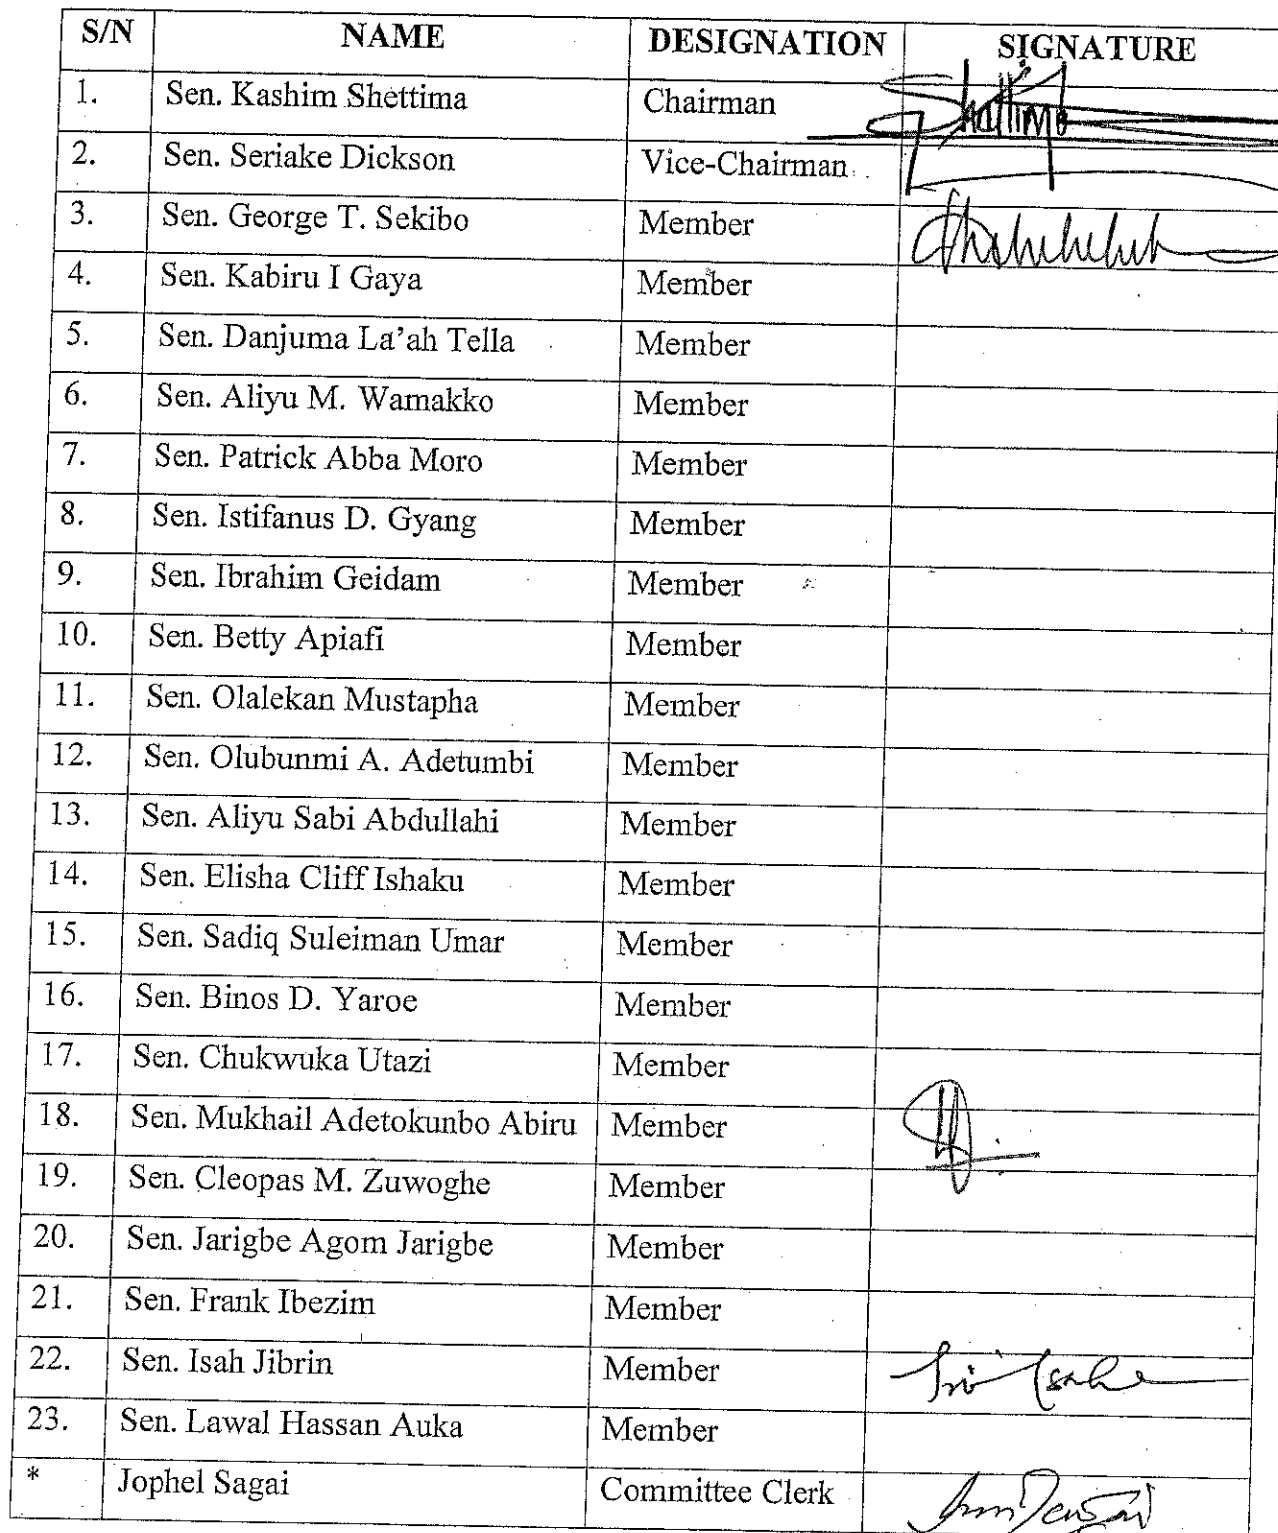 S/N NAME DESIGNATION SIGNATURE
1. Sen. Kashim Shettima Chairman Shettima
2. Sen. Seriake Dickson Vice-Chairman
3. Sen. George T. Sekibo Member
4. Sen. Kabiru I Gaya Member
5. Sen. Danjuma La'ah Tella Member
6. Sen. Aliyu M. Wamakko Member
7. Sen. Patrick Abba Moro Member
8. Sen. Istifanus D. Gyang Member
9. Sen. Ibrahim Geidam Member
10. Sen. Betty Apiafi Member
11. Sen. Olalekan Mustapha Member
12. Sen. Olubunmi A. Adetumbi Member
13. Sen. Aliyu Sabi Abdullahi Member
14. Sen. Elisha Cliff Ishaku Member
15. Sen. Sadiq Suleiman Umar Member
16. Sen. Binos D. Yaroe Member
17. Sen. Chukwuka Utazi Member
18. Sen. Mukhail Adetokunbo Abiru Member
19. Sen. Cleopas M. Zuwoghe Member
20. Sen. Jarigbe Agom Jarigbe Member
21. Sen. Frank Ibezim Member
22. Sen. Isah Jibrin Member
23. Sen. Lawal Hassan Auka Member
* Jophel Sagai Committee Clerk